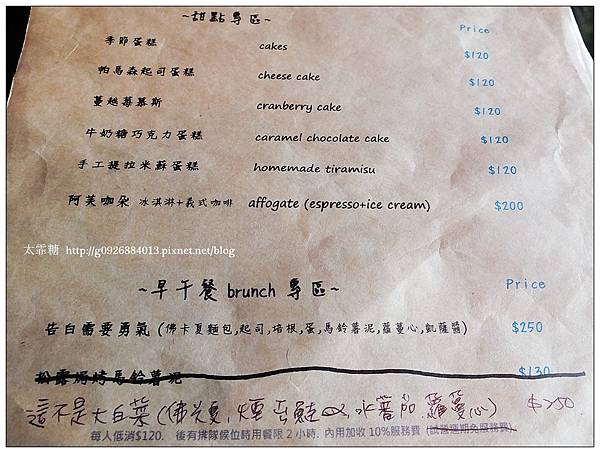 ~甜點專區~ Price
季節蛋糕 cakes $120
帕馬森起司蛋糕 cheese cake $120
蔓越莓慕斯 cranberry cake $120
牛奶糖巧克力蛋糕 caramel chocolate cake $120
手工提拉米蘇蛋糕 homemade tiramisu $120
阿芙咖朵 冰淇淋+義式咖啡 affogate (espresso+ice cream) $200
太霏糖 http://g0926884013.pixnet.net/blog
~早午餐 brunch 專區~ Price
告白需要勇氣 (佛卡夏麵包,起司,培根,蛋,馬鈴薯泥,蘿蔓心,凱薩醬) $250
松露焗烤馬鈴薯泥 $130
這不是大白菜 (佛卡夏, 煙 鮭 , 水 蕃茄, 蘿蔓心) $250
每人低消$120. 後有排隊候位時用餐限 2 小時. 內用加收 10%服務費 (試營運期免服務費)